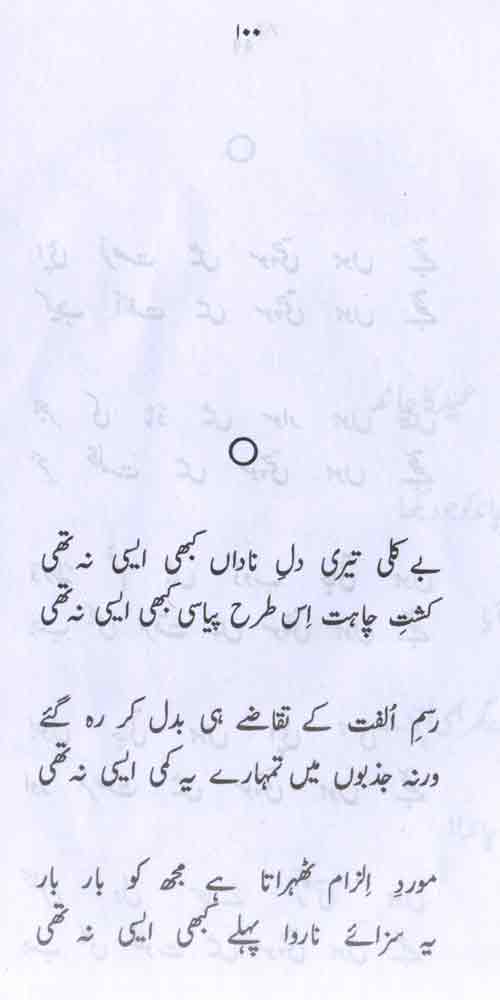 ۱۰۰
بے کلی تیری دلِ ناداں کبھی ایسی نہ تھی
کشتِ چاہت اِس طرح پیاسی کبھی ایسی نہ تھی
رسمِ اُلفت کے تقاضے ہی بدل کر رہ گئے
ورنہ جذبوں میں تمہارے یہ کمی ایسی نہ تھی
موردِ اِلزام ٹھہراتا ہے مجھ کو بار بار
یہ سزائے ناروا پہلے کبھی ایسی نہ تھی